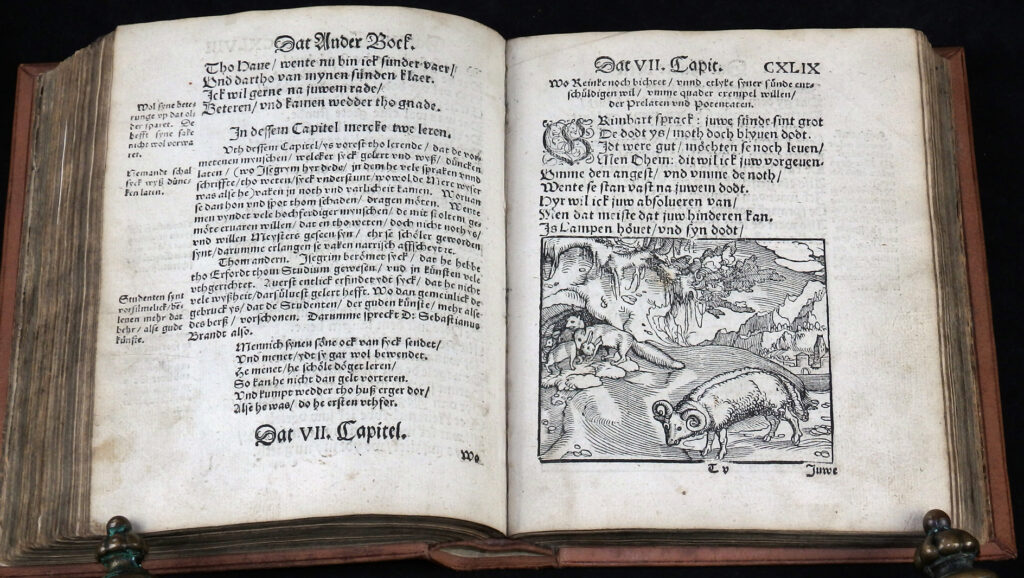 Dat Ander Bock.
Tho Haue/ wente nu bin ick sunder vaer/
Vnd dartho van mynen sünden klaer.
Ick wil gerne na juwem rade/
Beteren/ vnd kamen wedder tho gnade.
In dessem Capitel mercke twe leren.
Vth dessem Capitel/ ys vorest tho lerende/ dat de vor-
metenen mynschen/ welcker syck gelert vnd wyß/ düncken
laten/ (wo Isegrym hyr dede/ in dem he vele spraken vnnd
schriffte/ tho weten/ syck vnderstunt/ wowol de Mere wyser
was alse he) vaken jn noth vnd varlicheit kamen. Woruan
se dan hon vnd spot thom schaden/ dragen möten. Wente
men vyndet vele hochferdiger mynschen/ de mit stoltem ge-
möte eruaren willen/ dat en tho weten/ doch nicht noth ys/
vnd willen Meysters geseen syn/ ehr se schöler geworden
synt/ darumme erlangen se vaken narrisch affscheyt rc.
Thom andern. Isegrim berömet syck/ dat he hebbe
tho Erfordt thom Studium gewesen/ vnd jn künsten vele
vthgerichtet. Auerst entlick erfindet ydt syck/ dat he nicht
vele wyßheit/ darsüluest gelert hefft. Wo dan gemeinlick de
gebruck ys/ dat de Studenten/ der guden künste/ mehr alse
des berß/ vorschonen. Darumme spreckt D. Sebastianus
Brandt also.
Mennich synen söne ock van syck sendet/
Vnd menet/ ydt sy gar wol bewendet.
He menet/ he schöle döget leren/
So kan he nicht dan gelt vorteren.
Vnd kumpt wedder tho huß erger dor/
Alse he was/ do he ersten vthfor.
Dat VII. Capitel.
Wo
Wol syne bete-
runge vp dat ol-
der sparet. De
hefft syne sake
nicht wol vorwa-
ret.
Nemandt schal
syck wyß dünc-
ken laten.
Studenten synt
mehr dat
behr/ alse gude
künste.
Dat VII. Capit. CXLIX
Wo Reinke noch bichtet/ vnnd etlyke syner sünde ent-
schüldigen wil/ vmme quader exempel willen/
der Prelaten vnd Potentaten.
GRimbart sprack: juwe sünde sint grot
De dodt ys/ moth doch blyuen dodt.
Idt were gut/ möchten se noch leuen/
Men Ohem: dit wil ick juw vorgeuen.
Vmme den angest/ vnd vmme de noth/
Wente se stan vast na juwem dodt.
Hyr wil ick juw absolueren van/
Men dat meiste dat juw hinderen kan.
Is Lampen höuet/ vnd syn dodt/
T v
Juwe